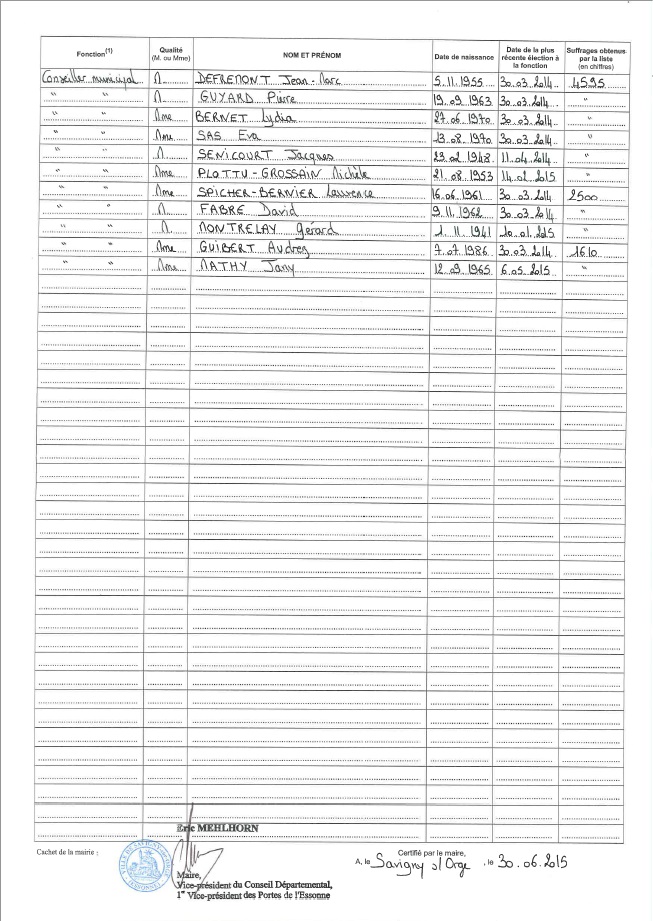 Fonction(1) Qualité (M. ou Mme) NOM ET PRÉNOM Date de naissance Date de la plus récente élection à la fonction Suffrages obtenus par la liste (en chiffres)
Conseiller municipal M. DEFREMONT Jean-Marc 5.11.1955 30.03.2014 4595
" " M. GUYARD Pierre 19.09.1963 30.03.2014 "
" " Mme BERNET Lydia 27.06.1970 30.03.2014 "
" " Mme SAS Eva 13.08.1970 30.03.2014 "
" " M. SENICOURT Jacques 23.02.1948 11.04.2014 "
" " Mme PLOTTU-GROSSAIN Michèle 21.08.1953 14.01.2015 "
" " Mme SPICHER-BERNIER Laurence 16.06.1961 30.03.2014 2500
" " M. FABRE David 9.11.1962 30.03.2014 "
" " M. MONTRELAY Gérard 1.11.1941 10.01.2015 "
" " Mme GUIBERT Audrey 7.07.1986 30.03.2014 1610
" " Mme MATHY Jany 12.09.1965 6.05.2015 "
Eric MEHLHORN
Cachet de la mairie :
Certifié par le maire,
A, le Savigny s/ Orge , le 30.06.2015
Maire,
Vice-président du Conseil Départemental,
1er Vice-président des Portes de l'Essonne